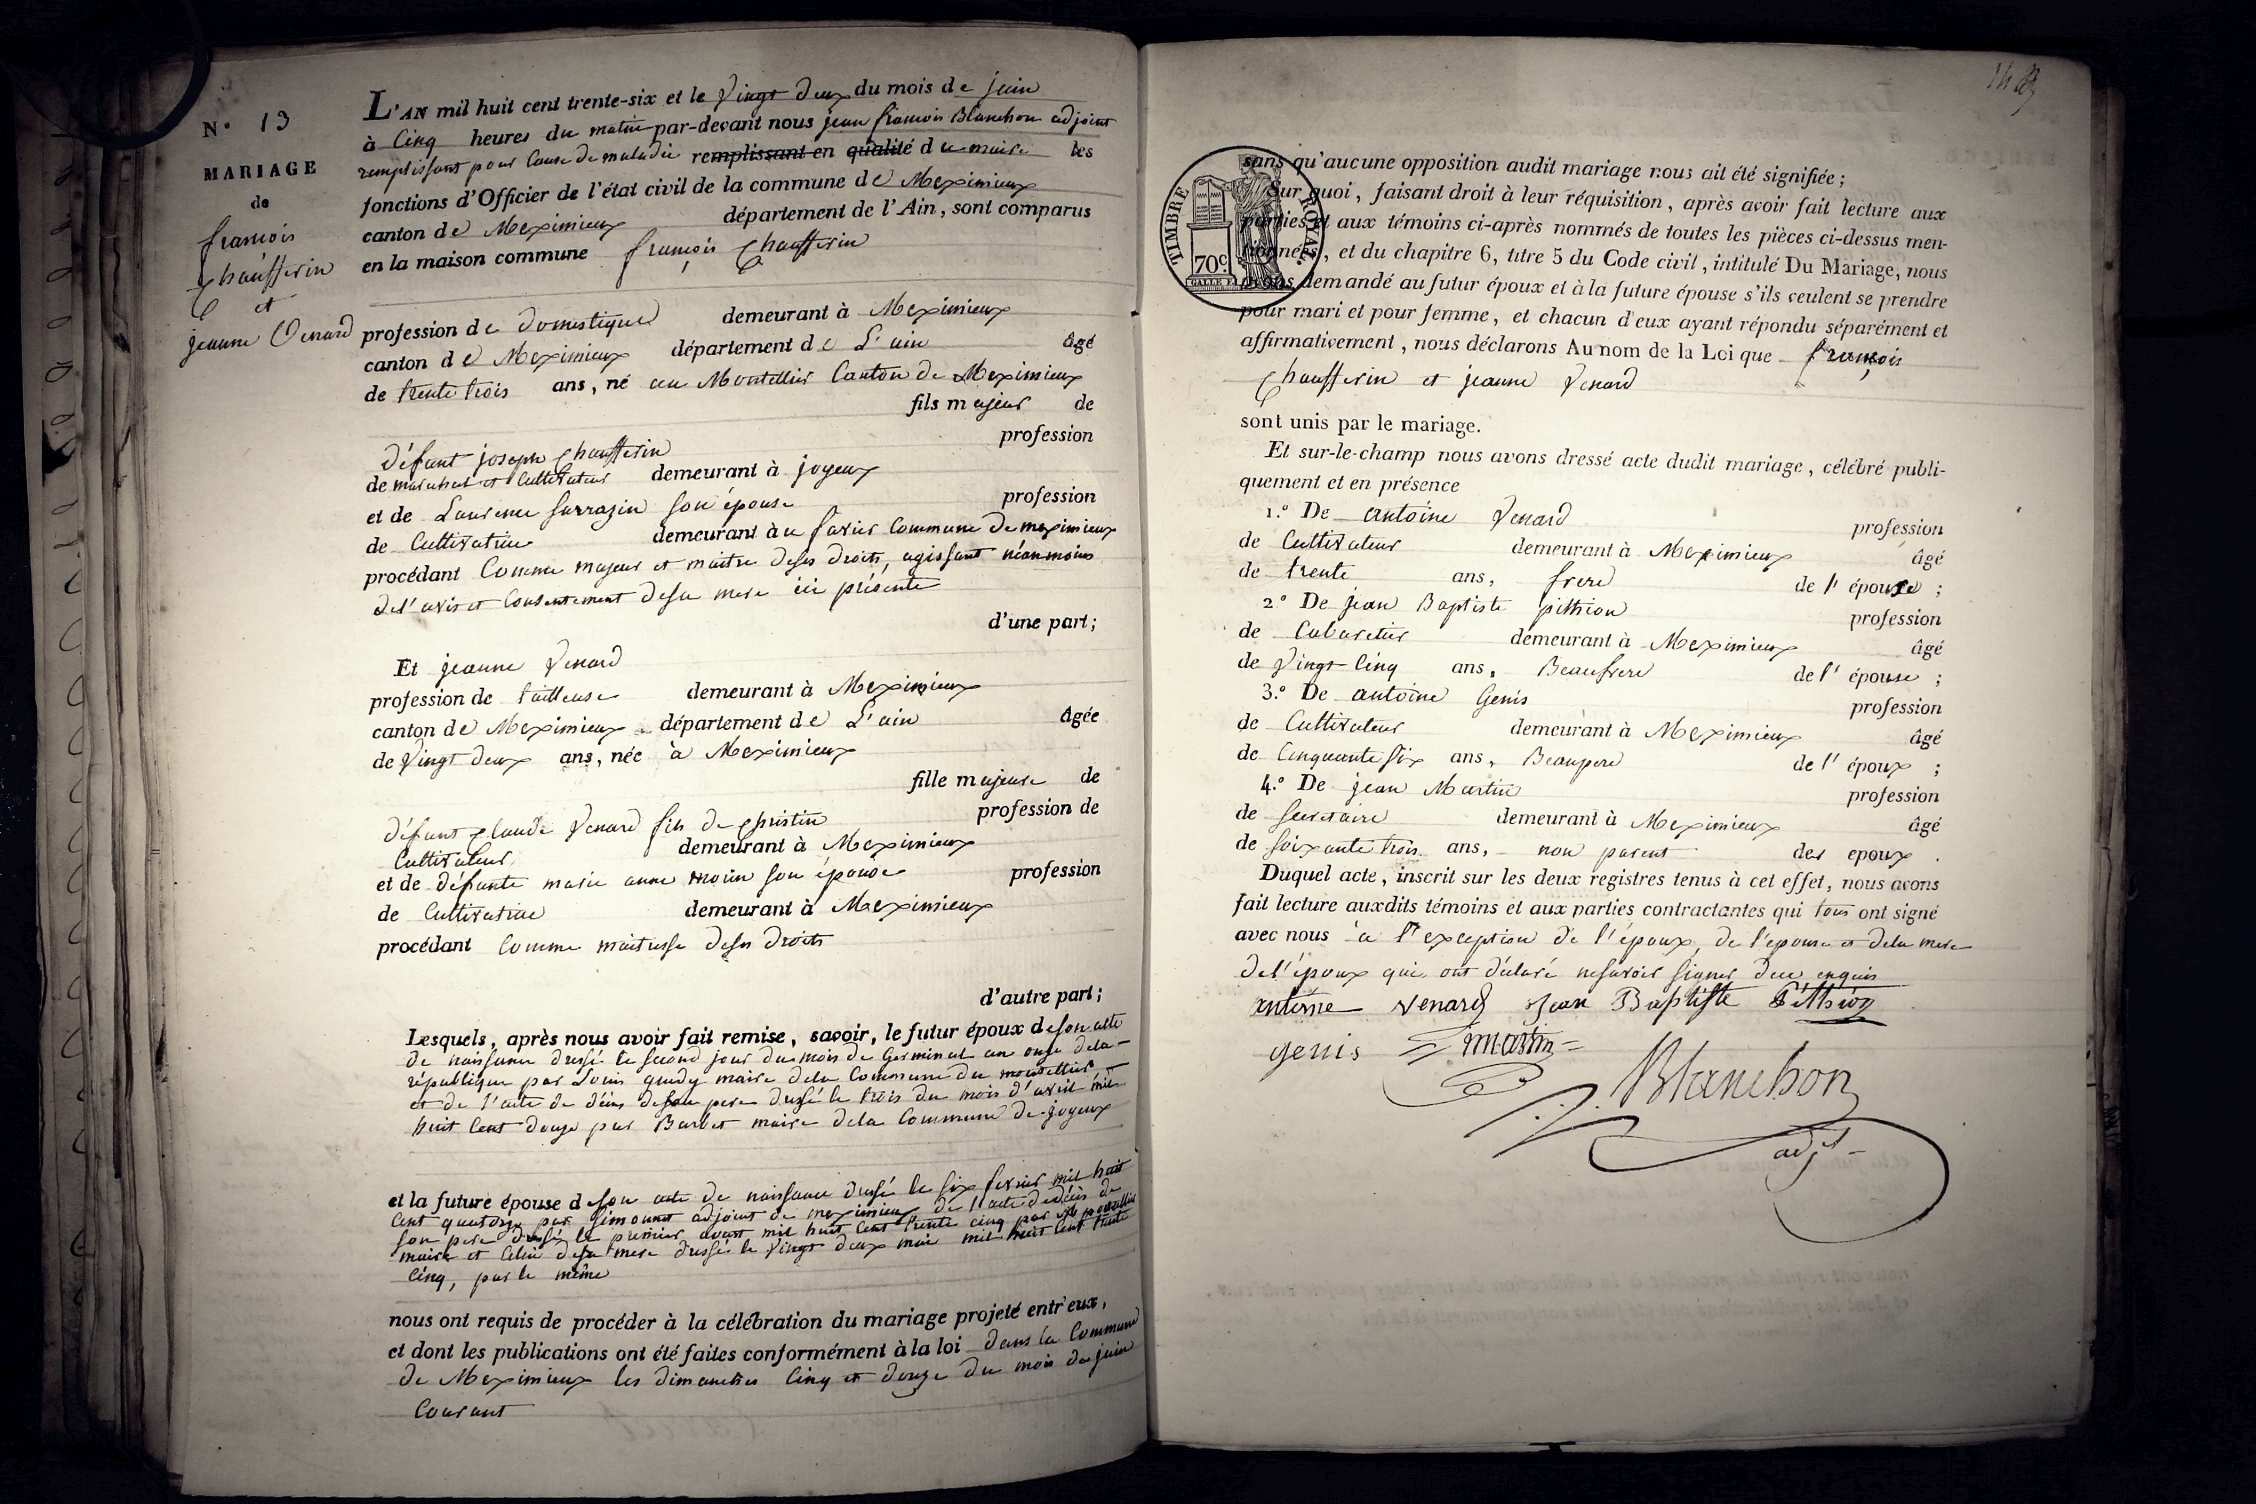 N.° 13
MARIAGE
de
françois
Chaufferin
et
jeanne Venard
L'AN mil huit cent trente-six et le Vingt deux du mois de juin
à Cinq heures du matin par-devant nous jean françois Blanchon adjoint
remplissant pour Cause de maladie remplissant en qualité du maire les
fonctions d'Officier de l'état civil de la commune de Meximieux
canton de Meximieux département de l'Ain, sont comparus
en la maison commune françois Chaufferin
profession de Domestique demeurant à Meximieux
canton de Meximieux département de L'ain âgé
de trente trois ans, né au Montellier Canton de Meximieux
fils majeur de
profession
défunt joseph Chaufferin
de et Cultivateur demeurant à joyeux
et de Laurence Sarrazin son épouse profession
de Cultivatrice demeurant à commune de meximieux
procédant Comme majeur et maitre deses droits, agissant néanmoins
del'avis et Consentement desa mere ici présente
d'une part;
Et jeanne Venard
profession de tailleuse demeurant à Meximieux
canton de Meximieux département de L'ain âgée
de Vingt deux ans, née à Meximieux
fille majeure de
profession de
défunt Claude Venard fils de Christin
Cultivateur demeurant à Meximieux
et de défunte marie anne moïn son épouse profession
de Cultivatrice demeurant à Meximieux
procédant Comme maitresse deses droits
d'autre part;
Lesquels, après nous avoir fait remise, savoir, le futur époux deson acte
de naissance dressé le second jour du mois de Germinal an onze dela
république par Louis maire dela Commune du montellier
et de l'acte de décès deson pere dressé le trois du mois d'avril mil
huit Cent douze par Barbet maire dela Commune de joyeux
et la future épouse deson acte de naissance dressé le six fevrier mil huit
Cent quatorze par Simonet adjoint de meximieux de l'acte dedécès de
son pere dressé le premier avout mil huit Cent trente cinq par
maire et Celui desa mere dressé le Vingt deux mai mil huit Cent trente
Cinq, par le même
nous ont requis de procéder à la célébration du mariage projeté entr'eux,
et dont les publications ont été faites conformément à la loi dans la Commune
de Meximieux les dimanches Cinq et douze du mois de juin
Courant
TIMBRE ROYAL
70c
sans qu'aucune opposition audit mariage nous ait été signifiée;
Sur quoi, faisant droit à leur réquisition, après avoir fait lecture aux
parties et aux témoins ci-après nommés de toutes les pièces ci-dessus men-
tionnées, et du chapitre 6, titre 5 du Code civil, intitulé Du Mariage, nous
avons demandé au futur époux et à la future épouse s'ils veulent se prendre
pour mari et pour femme, et chacun d'eux ayant répondu séparément et
affirmativement, nous déclarons Au nom de la Loi que françois
Chaufferin et jeanne Venard
sont unis par le mariage.
Et sur-le-champ nous avons dressé acte dudit mariage, célébré publi-
quement et en présence
1.° De antoine Venard profession
de Cultivateur demeurant à Meximieux âgé
de trente ans, frere de l'épouse;
2° De jean Baptiste pithion profession
de Cabaretier demeurant à Meximieux âgé
de Vingt Cinq ans, Beaufrere de l'épouse;
3.° De antoine Genis profession
de Cultivateur demeurant à Meximieux âgé
de Cinquante six ans, Beaupere de l'époux;
4.° De jean Martin profession
de Secretaire demeurant à Meximieux âgé
de soixante trois ans, non parent des epoux.
Duquel acte, inscrit sur les deux registres tenus à cet effet, nous avons
fait lecture auxdits témoins et aux parties contractantes qui tous ont signé
avec nous à l'exception de l'époux, de l'epouse et dela mere
del'époux qui ont déclaré nesavoir signer dece enquis
antoine venard Jean Baptiste Pithion
genis martin
Blanchon
adjt